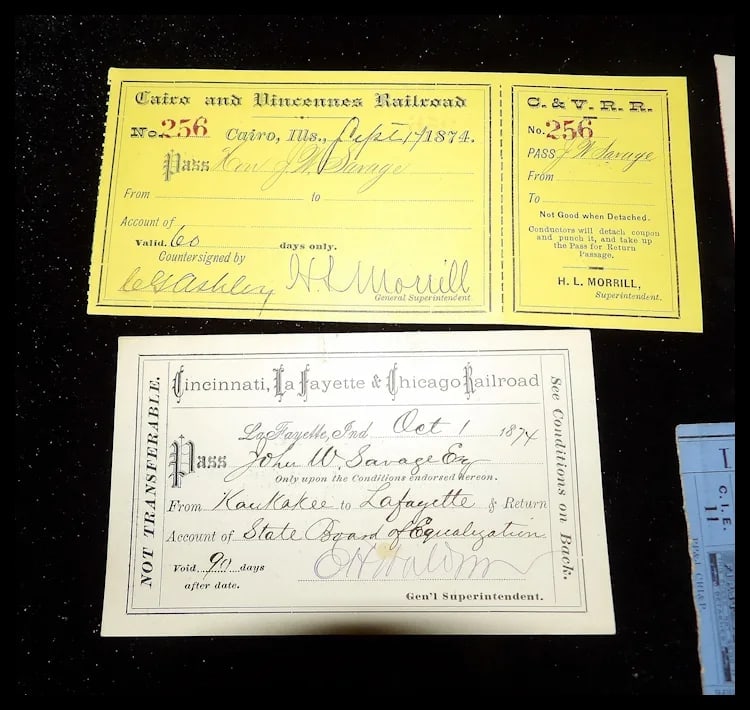 Cairo and Vincennes Railroad
No. 256 Cairo, Ills., Sept 17 1874.
Pass Hon J. W. Savage
From to
Account of
Valid 60 days only.
Countersigned by
CG Ashley H L Morrill
General Superintendent
C. & V. R. R.
No. 256
PASS J W Savage
From
To
Not Good when Detached.
Conductors will detach coupon
and punch it, and take up
the Pass for Return
Passage.
H. L. MORRILL,
Superintendent.
NOT TRANSFERABLE.
Cincinnati, La Fayette & Chicago Railroad
La Fayette, Ind Oct 1 1874
Pass John W. Savage Esq
Only upon the Conditions endorsed hereon.
From Kankakee to Lafayette & Return
Account of State Board of Equalization
Void 90 days
after date.
Gen'l Superintendent.
See Conditions on Back.
C. I. E.